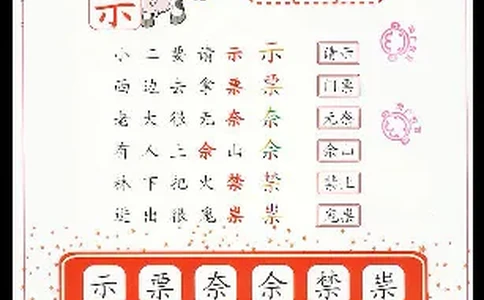 示
小二要请示 示 请示
西边去拿票 票 门票
老大很无奈 奈 无奈
有人上佘山 佘 佘山
林下把火禁 禁 禁止
进出很鬼祟 祟 鬼祟
示 票 奈 佘 禁 祟